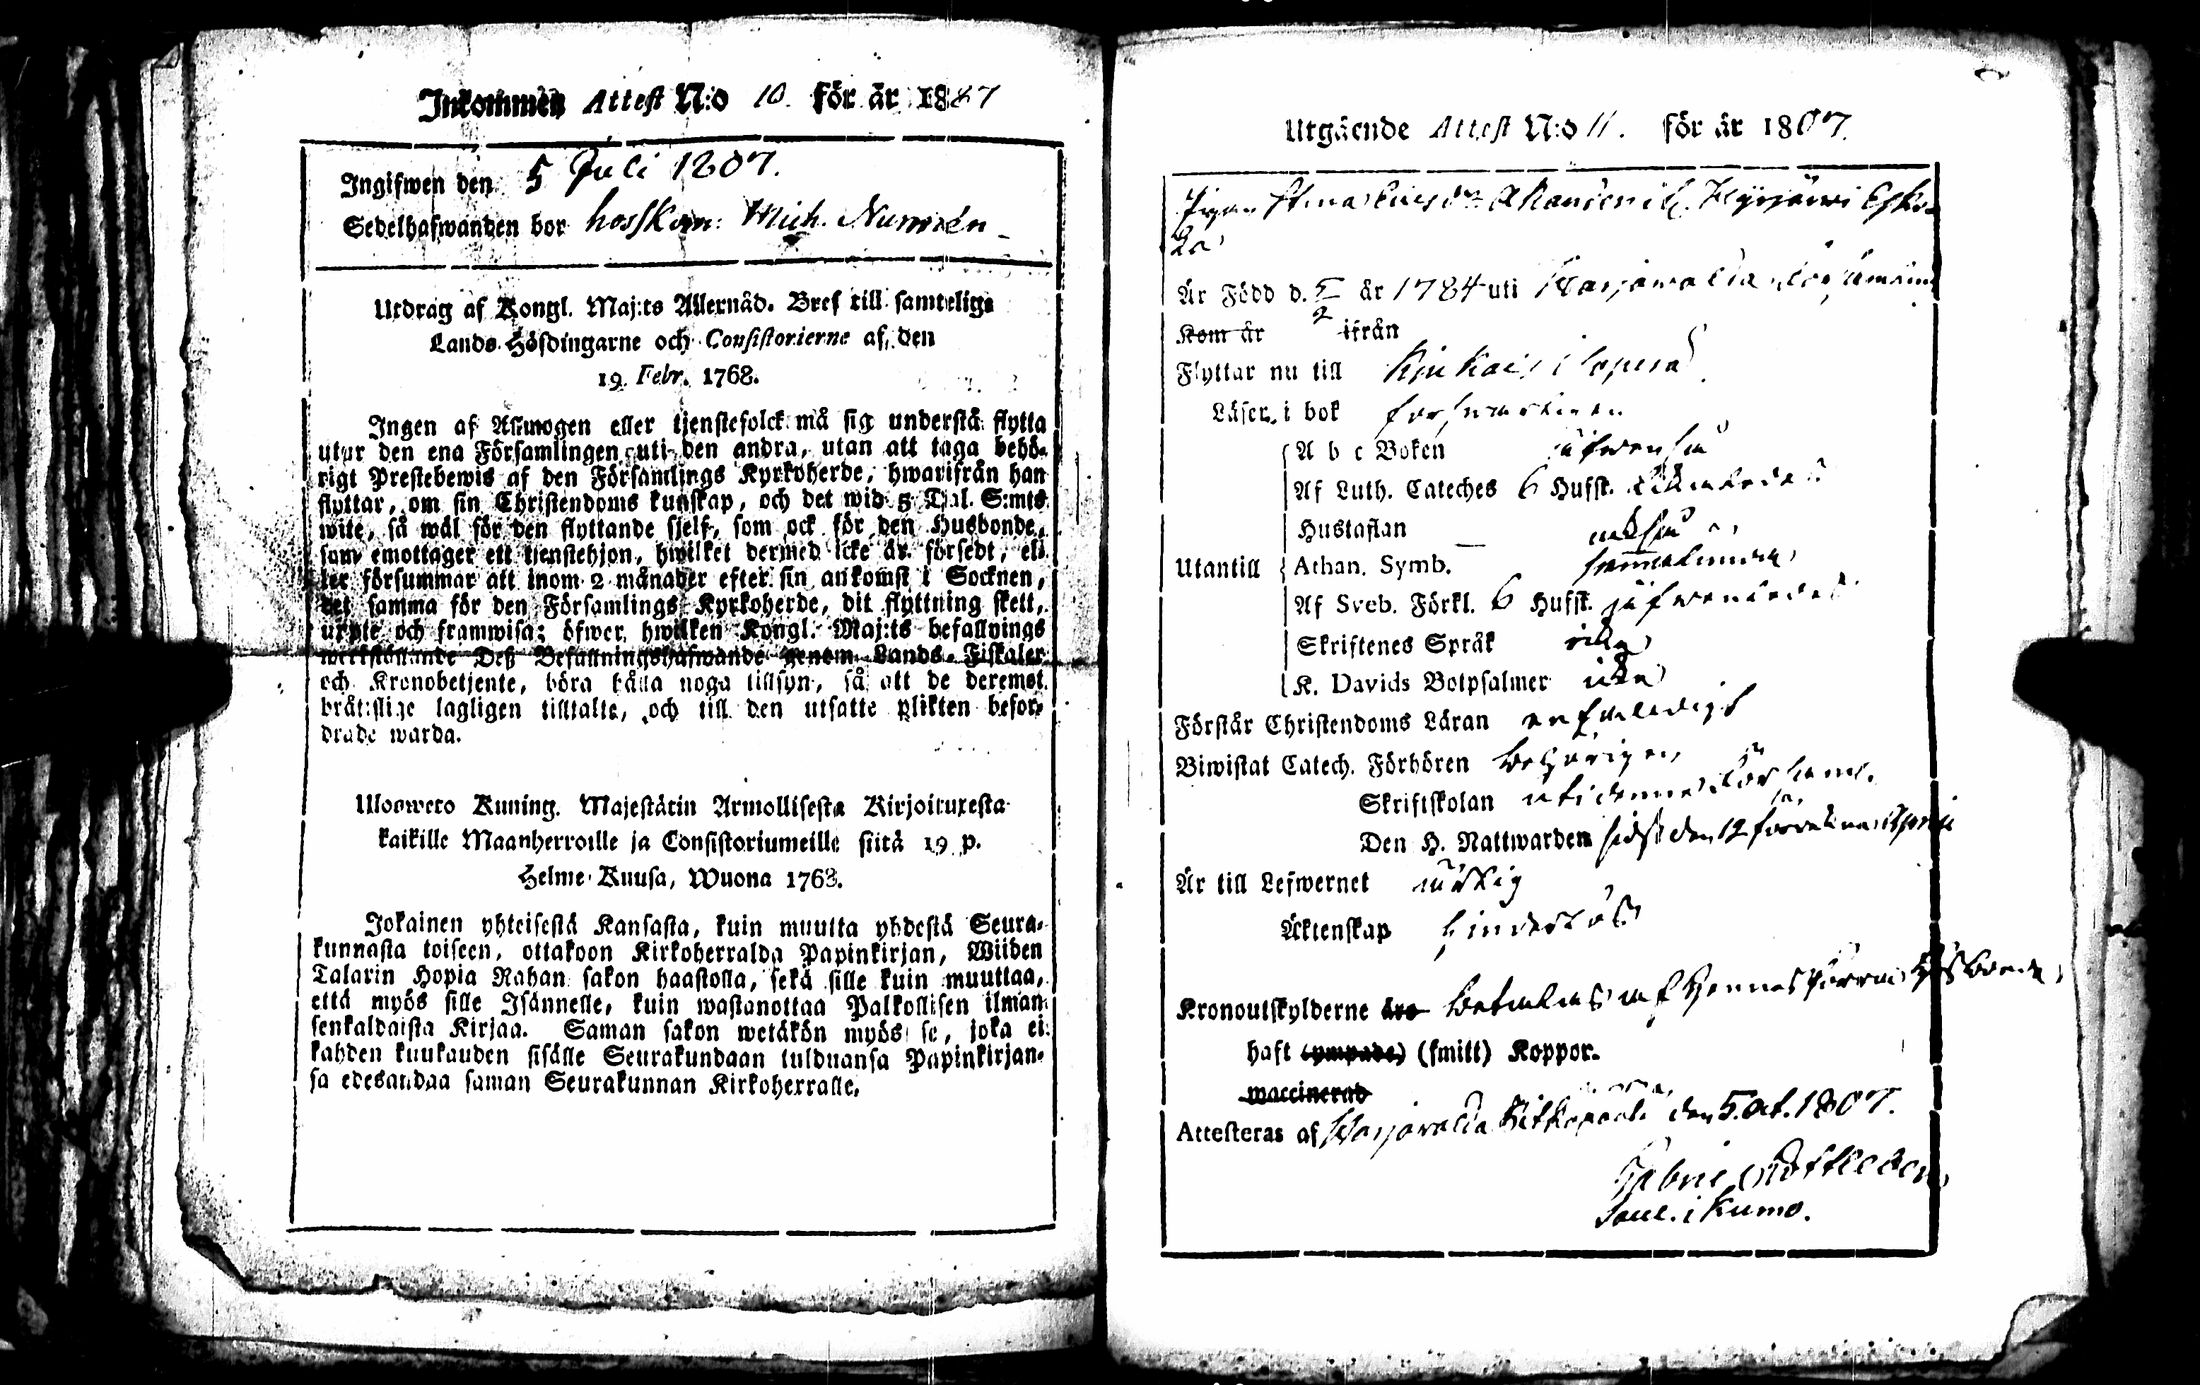 Inkommen Attest N:o 10. för år 1807
Ingifwen den 5 Juli 1807.
Sedelhafwanden bor hos Skom: Mich. Numelin
Utdrag af Kongl. Maj:ts Allernåd. Bref till samtelige
Lands-Höfdingarne och Consistorierne af den
19 Febr. 1768.
Ingen af Allmogen eller tjenstefolck må sig understå flytta
utur den ena Församlingen uti den andra, utan att taga behö-
rigt Prestebewis af den Församlings Kyrkoherde, hwarifrån han
flyttar, om sin Christendoms kunskap, och det wid 5 Dal. S:mts
wite, så wäl för den flyttande sjelf, som ock för den Husbonde,
som emottager ett tjenstehjon, hwilket dermed icke är försedt, el-
ler försummar att inom 2 månader efter sin ankomst i Socknen,
det samma för den Församlings Kyrkoherde, dit flyttning skett,
upte och framwisa; öfwer hwilken Kongl. Maj:ts befallnings
werkställande Deß Befallningshafwande genom Lands-Fiskaler
och Kronobetjente, böra hålla noga tillsyn, så att de deremot
brätslige lagligen tilltalte, och till den utsatte plikten befor-
drade warda.
Ulosweto Kuning. Majestätin Armollisesta Kirjoituxesta
kaikille Maanherroille ja Consistoriumeille siitä 19 p.
Helme-Kuusa, Wuona 1768.
Jokainen yhteisestä Kansasta, kuin muutta yhdestä Seura-
kunnasta toiseen, ottakoon Kirkoherralda Papinkirjan, Wiiden
Talarin Hopia Rahan sakon haastolla, sekä sille kuin muuttaa,
että myös sille Isännelle, kuin wastanottaa Palkollisen ilman
senkaldaista Kirjaa. Saman sakon wetäkön myös se, joka ei
kahden kuukauden sisälle Seurakundaan tulduansa Papinkirjan-
sa edesandaa saman Seurakunnan Kirkoherralle.
Utgående Attest N:o 11. för år 1807.
Pigan Stina
Är Född d. 5/2 år 1784 uti Harjawalda
Kom år ifrån
Flyttar nu till Kjukais
Läser i bok försvarligen
A b c Boken äfwen så
Af Luth. Cateches 6 Hufst.
Hustaflan
Utantill Athan. Symb.
Af Sveb. Förkl. 6 Hufst.
Skriftenes Språk
K. Davids Botpsalmer icke
Förstår Christendoms Läran enfaldigt
Biwistat Catech. Förhören behörigen
Skriftskolan uti denna Församl.
Den H. Nattwarden sidst den 12 April
Är till Lefwernet
Äktenskap hinderlös
Kronoutskylderne äro betalas af hennes förra Husbonde
haft (ympade) (smitt) Koppor.
waccinerad
Attesteras af Harjavalda den 5. Oct. 1807.
Gabriel Rottleben
Sac. i Kumo.